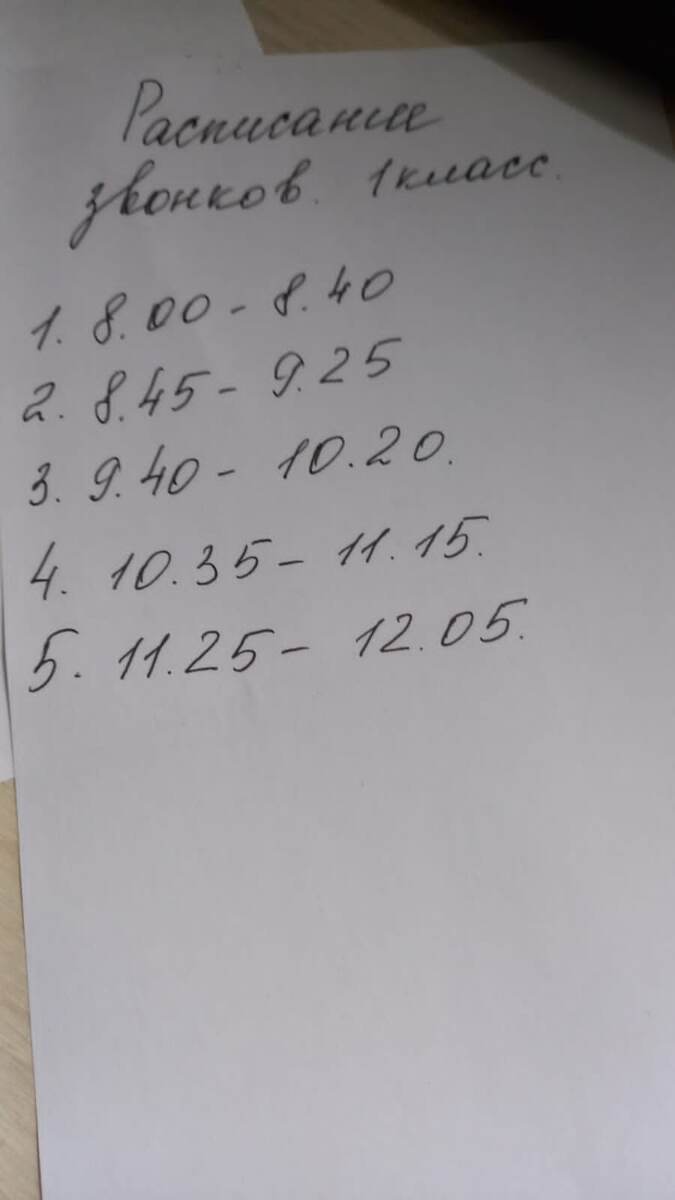 Расписание
звонков. 1 класс.
1. 8.00 - 8.40
2. 8.45 - 9.25
3. 9.40 - 10.20.
4. 10.35 - 11.15.
5. 11.25 - 12.05.